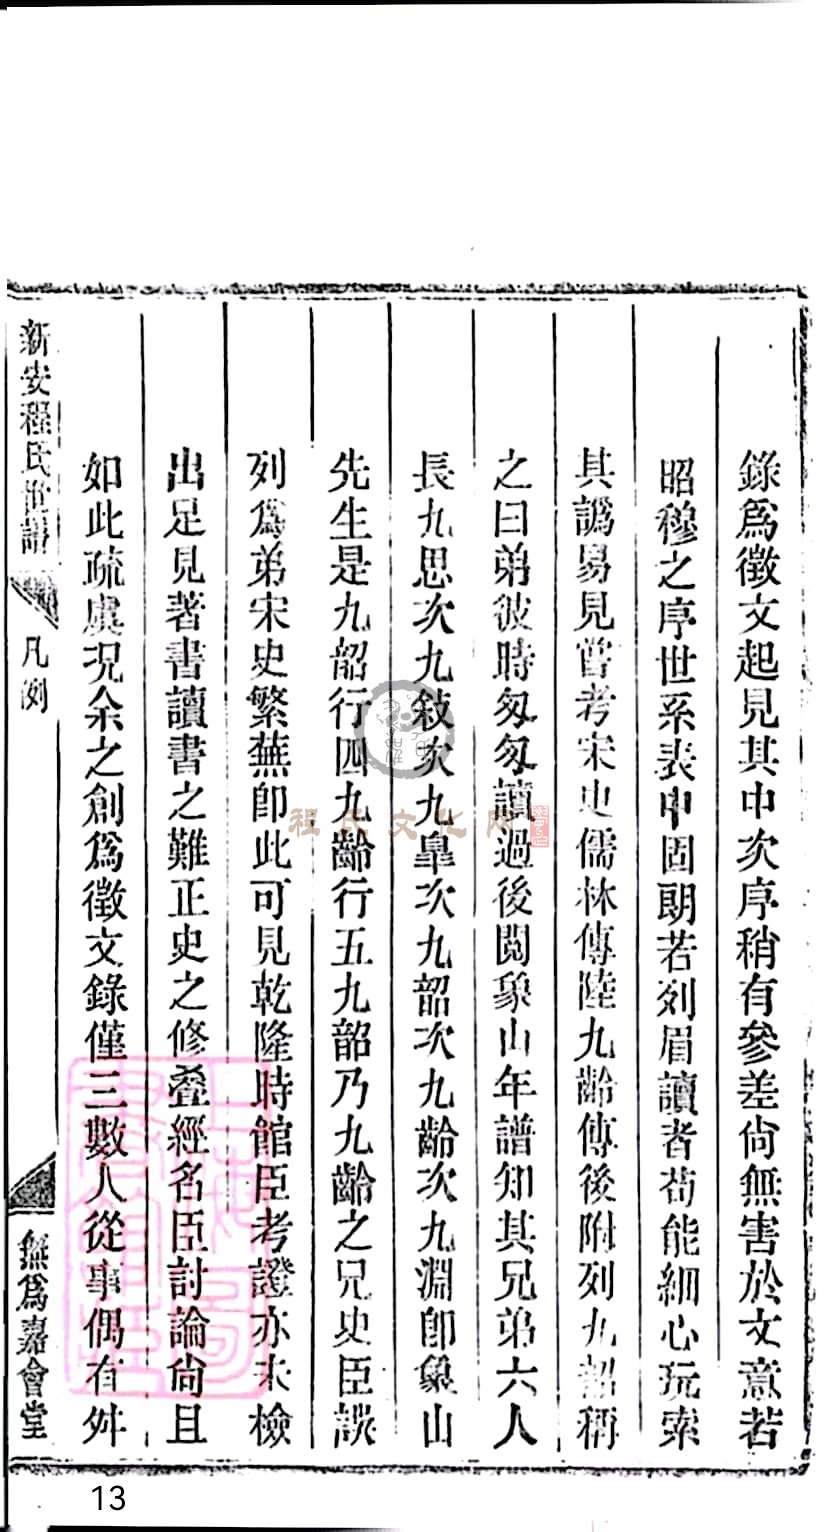 錄爲徵文起見其中次序稍有參差尙無害於文意若
昭穆之序世系表中固朗若列眉讀者苟能細心玩索
其譌易見嘗考宋史儒林傳陸九齡傳後附列九韶稱
之曰弟彼時匆匆讀過後閱象山年譜知其兄弟六人
長九思次九敍次九臯次九韶次九齡次九淵卽象山
先生是九韶行四九齡行五九韶乃九齡之兄史臣誤
列爲弟宋史繁蕪卽此可見乾隆時館臣考證亦未檢
出足見著書讀書之難正史之修叠經名臣討論尙且
如此疏虞况余之創爲徵文錄僅三數人從事偶有舛
新安程氏世譜
凡例
無爲嘉會堂
程氏文化网
13